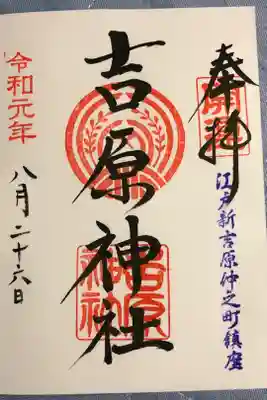 奉拝
江戸新吉原仲之町鎮座
吉原神社
吉原神社
令和元年
八月二十六日